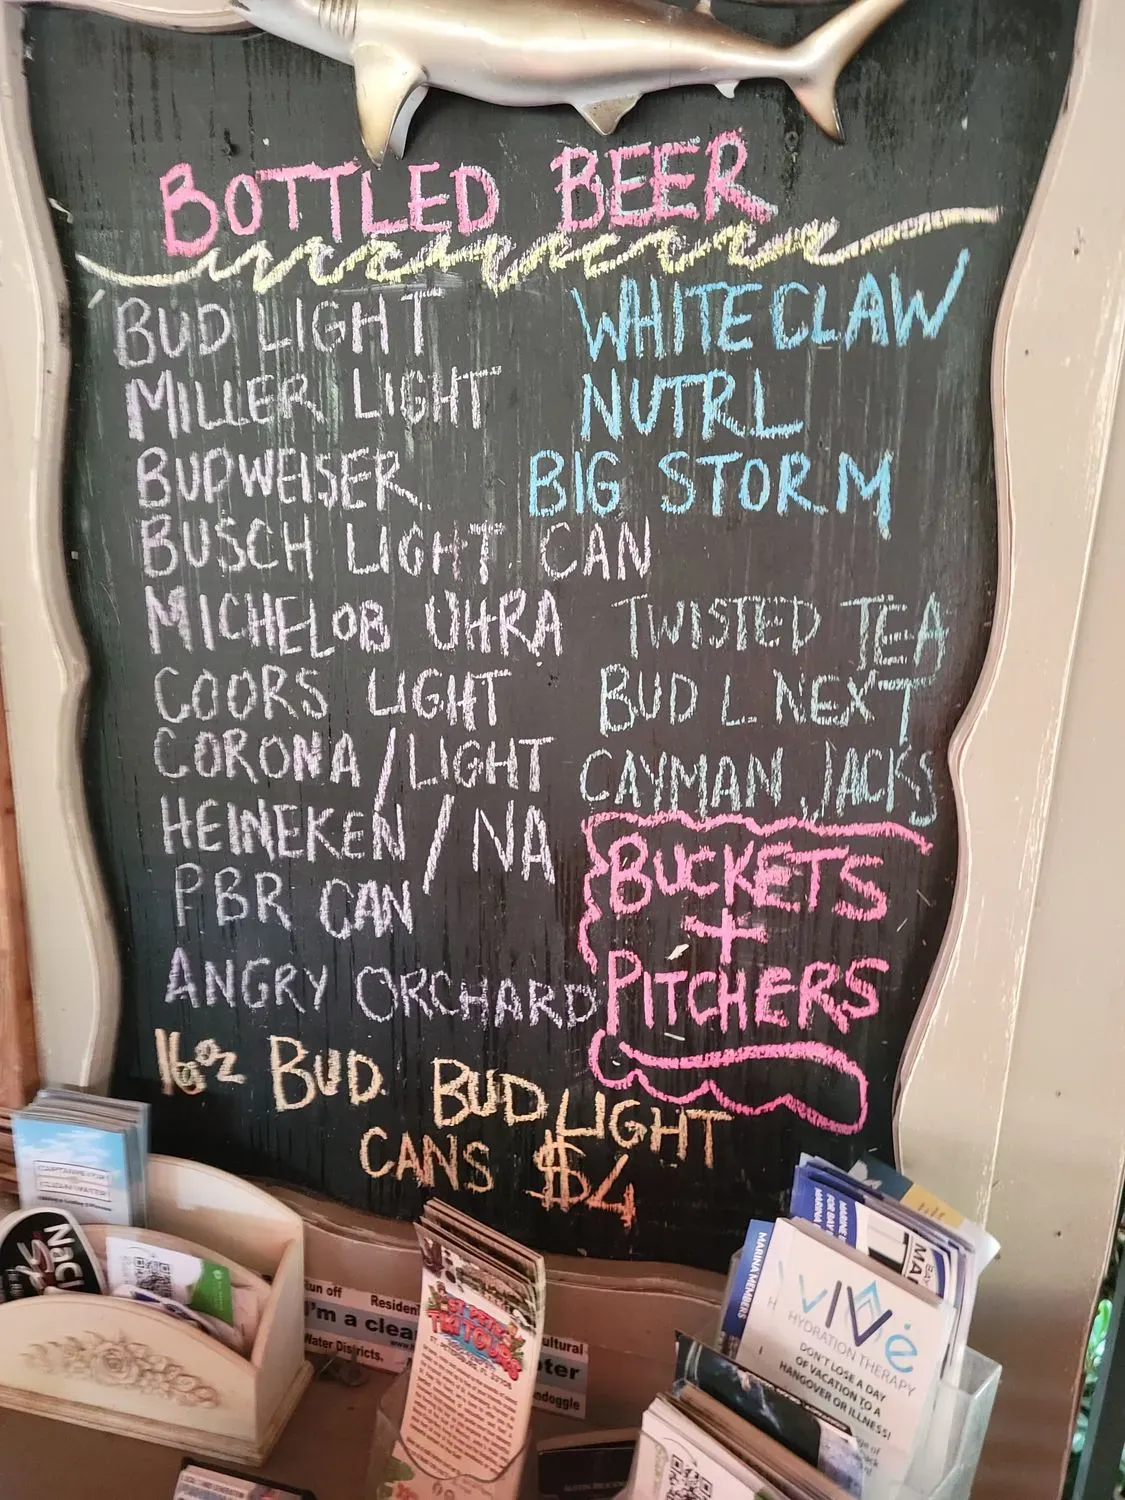 BOTTLED BEER
BUD LIGHT
MILLER LIGHT
BUDWEISER
BUSCH LIGHT CAN
MICHELOB ULTRA
COORS LIGHT
CORONA / LIGHT
HEINEKEN / NA
PBR CAN
ANGRY ORCHARD
WHITE CLAW
NUTRL
BIG STORM
TWISTED TEA
BUD L NEXT
CAYMAN JACKS
BUCKETS
+
PITCHERS
16oz BUD BUD LIGHT
CANS $4
Run off
I'm a clea
Water Districts,
ultural
ndoggle
TIKI TOURS
MARINA MEMBERS
VIVE
HYDRATION THERAPY
DON'T LOSE A DAY
OF VACATION TO A
HANGOVER OR ILLNESS!